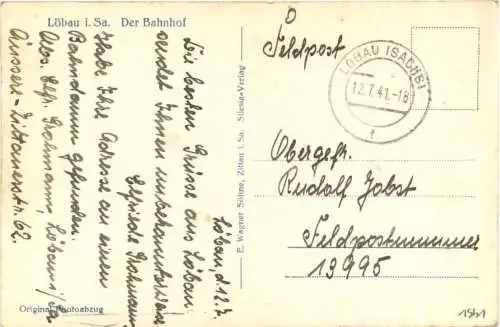 Löbau i. Sa. Der Bahnhof
Löbau d. 12.7.
Die besten Grüsse aus Löbau
sendet Ihnen unbekannterweise
Elfriede Grohmann
Habe Ihre Adresse an einen
Bahndamm gefunden.
Abs. Elfr. Grohmann, Löbau i/Sa
Äussere-Zittauerstr. 62.
Original-Photoabzug
E. Wagner Söhne, Zittau i. Sa. Silesia-Verlag
Feldpost
LÖBAU (SACHS)
12.7.41.-18
f
Obergefr.
Rudolf Jobst
Feldpostnummer
13995
1541